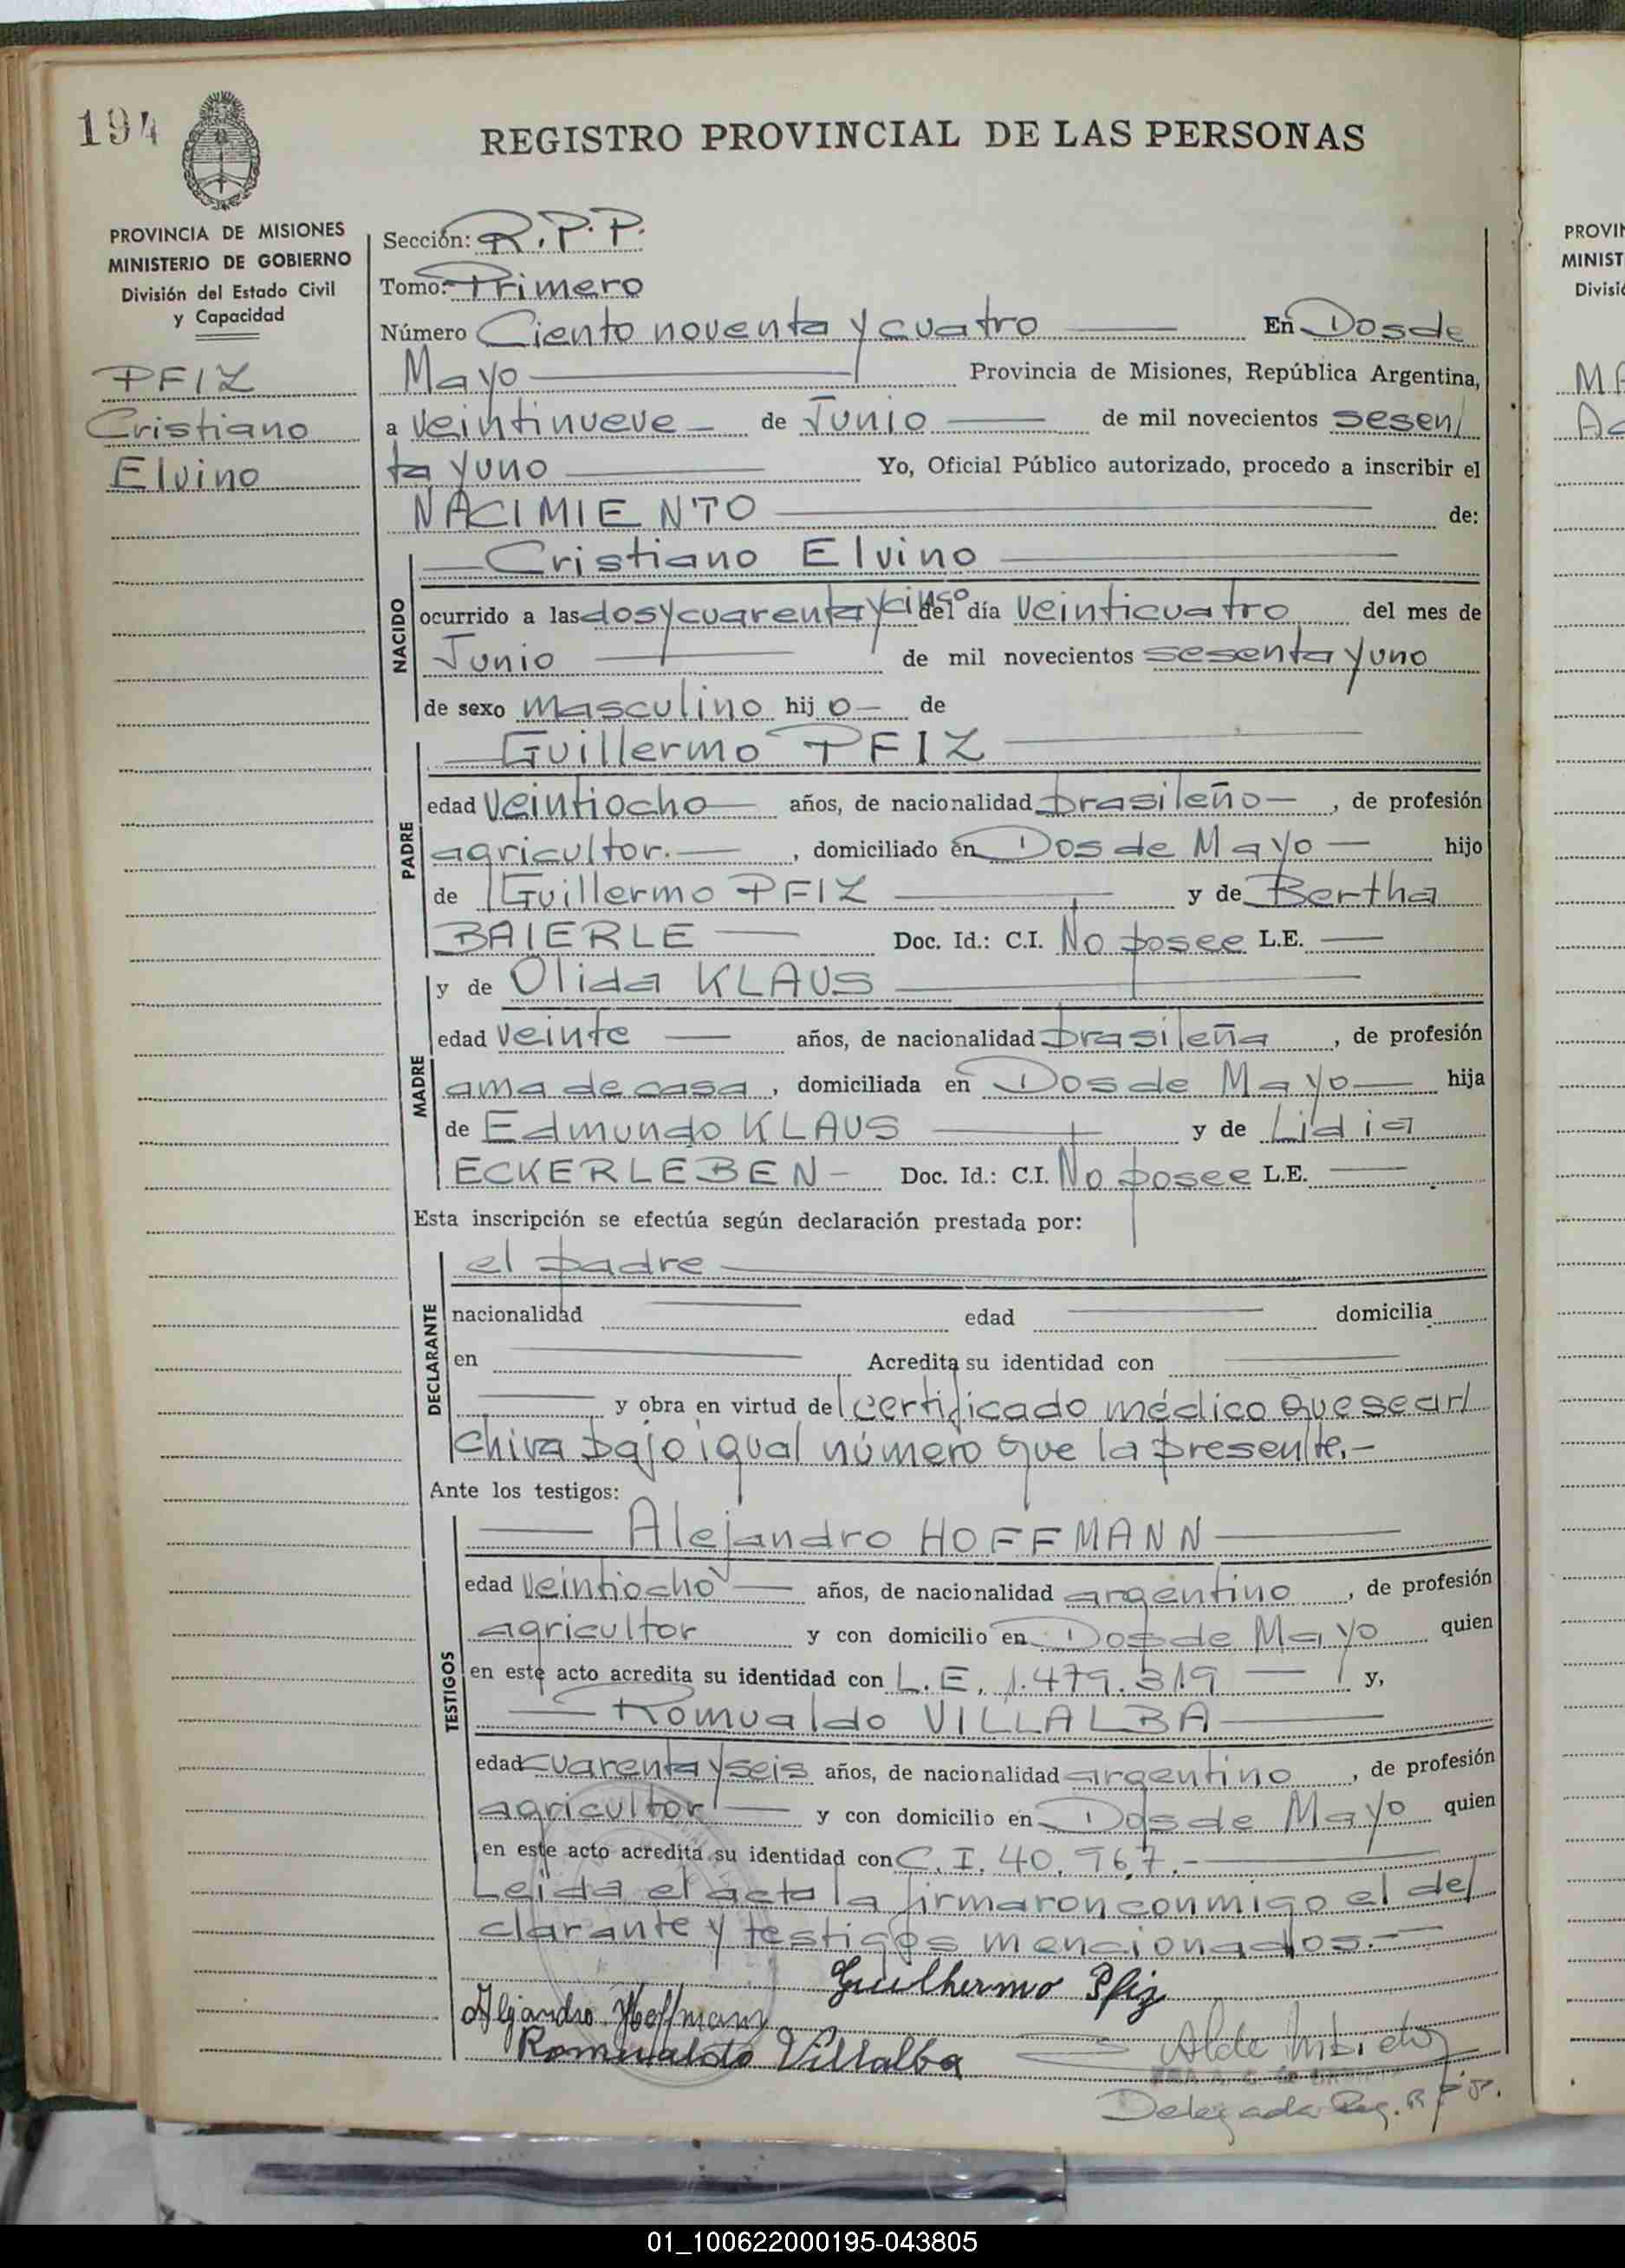 194
REGISTRO PROVINCIAL DE LAS PERSONAS
PROVINCIA DE MISIONES
MINISTERIO DE GOBIERNO
División del Estado Civil
y Capacidad
PFIZ
Cristiano
Elvino
Sección: R.P.P.
Tomo: Primero
Número Ciento noventa y cuatro En Dos de
Mayo Provincia de Misiones, República Argentina,
a veintinueve de Junio de mil novecientos sesen/
ta y uno Yo, Oficial Público autorizado, procedo a inscribir el
NACIMIENTO de:
NACIDO
Cristiano Elvino
ocurrido a las dos y cuarenta y cinco del día veinticuatro del mes de
Junio de mil novecientos sesenta y uno
de sexo masculino hijo de
PADRE
Guillermo PFIZ
edad veintiocho años, de nacionalidad brasileño, de profesión
agricultor. , domiciliado en Dos de Mayo hijo
de Guillermo PFIZ y de Bertha
BAIERLE Doc. Id.: C.I. No posee L.E.
MADRE
y de Olida KLAUS
edad veinte años, de nacionalidad brasileña, de profesión
ama de casa, domiciliada en Dos de Mayo hija
de Edmundo KLAUS y de Lidia
ECKERLEBEN Doc. Id.: C.I. No posee L.E.
Esta inscripción se efectúa según declaración prestada por:
DECLARANTE
el padre
nacionalidad edad domicilia
en Acredita su identidad con
y obra en virtud del certificado médico que se ar/
chiva bajo igual número que la presente.-
Ante los testigos:
TESTIGOS
Alejandro HOFFMANN
edad veintiocho años, de nacionalidad argentino, de profesión
agricultor y con domicilio en Dos de Mayo quien
en este acto acredita su identidad con L.E. 1.479.319 y,
Romualdo VILLALBA
edad cuarenta y seis años, de nacionalidad argentino, de profesión
agricultor y con domicilio en Dos de Mayo quien
en este acto acredita su identidad con C.I. 40.967.-
Leída el acta la firmaron conmigo el de/
clarante y testigos mencionados.-
Guilhermo Pfiz
Alejandro Hoffmann
Romualdo Villalba
Delegada Reg. R.P.P.
PROVIN
MINIST
Divisió
01_100622000195-043805